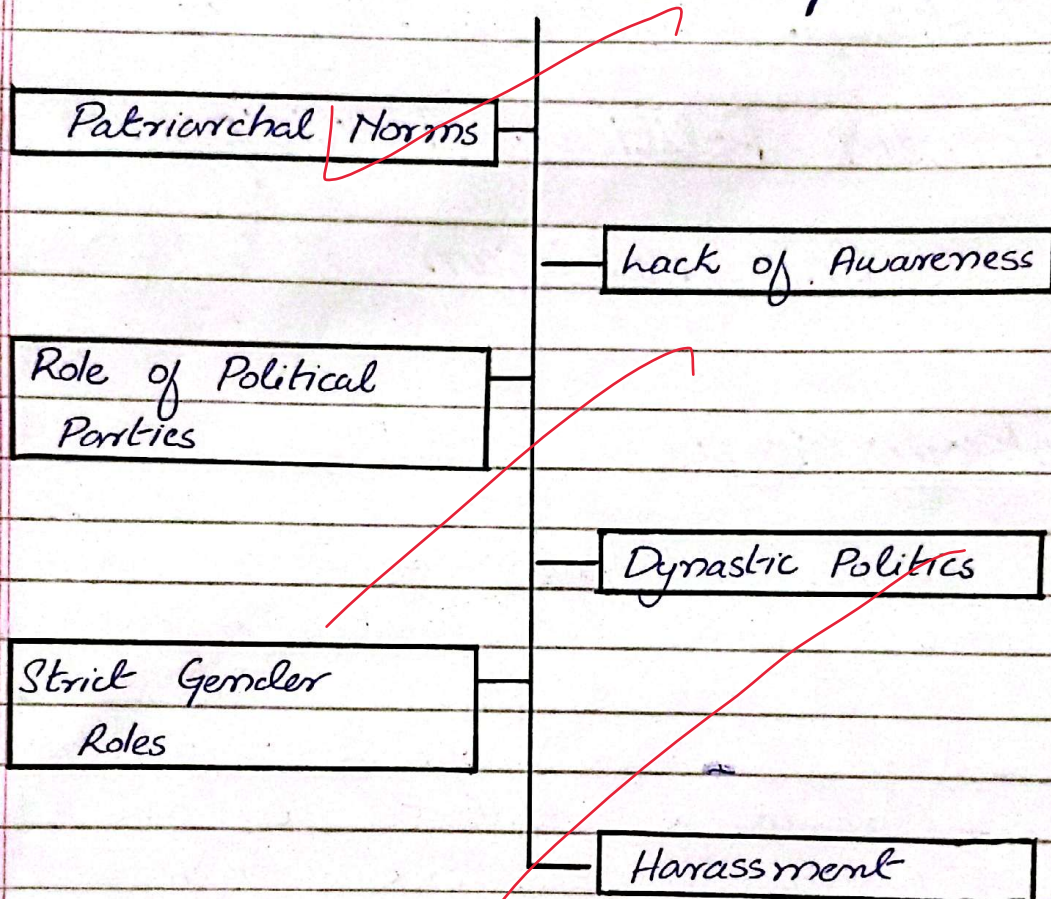 Patriarchal Norms
Lack of Awareness
Role of Political
Parties
Dynastic Politics
Strict Gender
Roles
Harassment